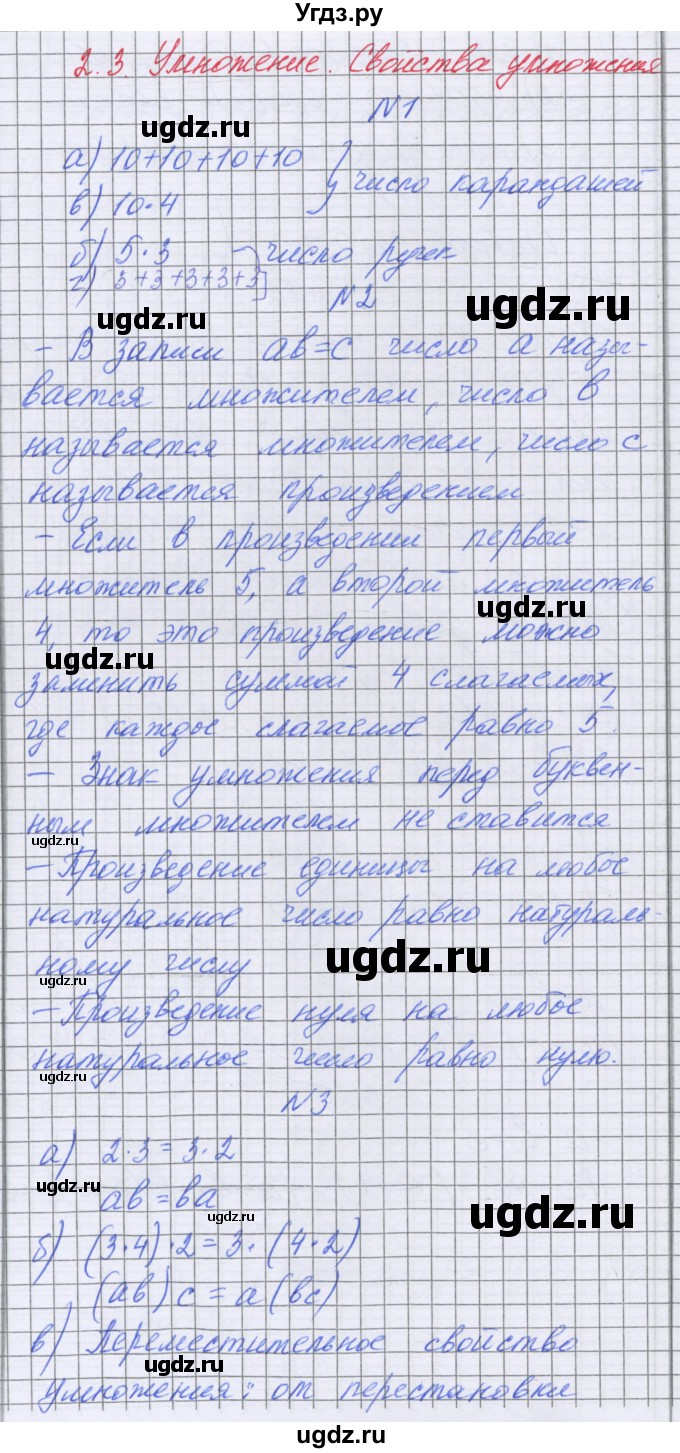 Угдз.ру
2.3. Умножение. Свойства умножения
№1
ugdz.ru
а) 10+10+10+10
в) 10·4
число карандашей
б) 5·3
г) 3+3+3+3+3
число ручек
ugdz.ru
№2
ugdz.ru
- В записи ab=c число a назы-
вается множителем, число b
называется множителем, число c
называется произведением
- Если в произведении первый
множитель 5, а второй множитель
ugdz.ru
4, то это произведение можно
ugdz.ru
заменить суммой 4 слагаемых,
где каждое слагаемое равно 5.
- Знак умножения перед буквен-
ным множителем не ставится
ugdz.ru
- Произведение единицы на любое
натуральное число равно натураль-
ному числу
ugdz.ru
ugdz.ru
- Произведение нуля на любое
натуральное число равно нулю.
ugdz.ru
№3
а) 2·3=3·2
ugdz.ru
ab=ba
ugdz.ru
ugdz.ru
б) (3·4)·2=3·(4·2)
(ab)c=a(bc)
в) Переместительное свойство
ugdz.ru
умножения: от перестановки
ugdz.ru